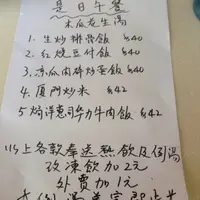 是日午餐
木瓜花生湯
1. 生炒排骨飯 $40
2. 紅燒豆付飯 $40
3. 涼瓜肉碎炒蛋飯 $40
4. 廈門炒米 $42
5. 焗洋葱司华力牛肉飯 $42
以上各款奉送熱飲及例湯
改凍飲加2元
外賣加1元